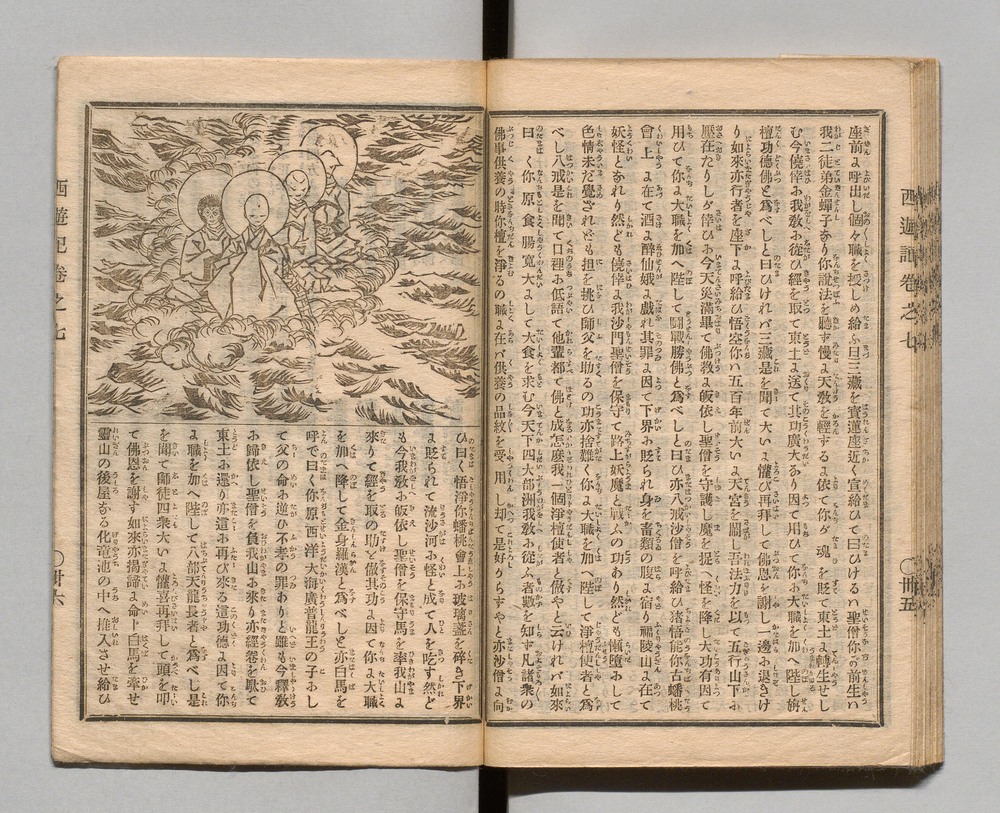 西遊記卷之七
〇卅五
座前よ呼出し個々職を授しめ給ふ旦三藏を寳蓮座近く宣給ひて曰ひけるハ聖僧你の前生ハ
我二徒弟金蟬子あり你說法を聽ず慢よ天敎を輕ずるよ依て你が魂を貶て東土よ轉生せし
む今僥倖お我敎お從ひ經を取て東土よ送て其功廣大あり因て用ひて你お大職を加へ陞し旃
檀功德佛と爲べしと曰ひけれバ三藏是を聞て大いよ懽び再拜して佛恩を謝し一邊お退きけ
り如來亦行者を座下よ呼給ひ悟空你ハ五百年前大いよ天宮を鬧し吾法力を以て五行山下お
壓在たりしが倖ひお今天災滿畢て佛敎よ皈依し聖僧を守護し魔を捉へ怪を降し大功有因て
用ひて你よ大職を加へ陞して鬪戰勝佛と爲べしと曰ひ亦八戒沙僧を呼給ひ猪悟能你古蟠桃
會上よ在て酒よ醉仙娥よ戲れ其罪よ因て下界お貶られ身を畜類の腹よ宿り福陵山よ在て
妖怪とあれり然ども僥倖よ我沙門聖僧を保守て路上妖魔と戰ふの功あり然ども懶墮おして
色情未だ覺されども担を挑び師父を助るの功亦捨難く你よ大職を加へ陞して淨檀使者と爲
べし八戒是を聞て口裡お低語て他輩都て佛と成怎麽我一個淨檀使者と做やと云けれバ如來
曰く你原食腸寬大よして大食を求む今天下四大部洲我敎お從ふ者數を知ず凡諸衆の
佛事供養の時你檀を淨るの職よ在バ供養の品紋を受用し却て是好からずやと亦沙僧よ向
ひ曰く悟淨你蟠桃會上お玻璃盞を碎き下界
よ貶られて流沙河お怪と成て人を吃す然ど
も今我敎お皈依し聖僧を保守馬を牽我山よ
來りて經を取の助と做其功よ因て你よ大職
を加へ陞して金身羅漢と爲べしと亦白馬を
呼で曰く你原西洋大海廣普龍王の子おし
て父の命お逆ひ不孝の罪ありと雖も今釋敎
お歸依し聖僧を負我山お來り亦經卷を馱て
東土お還り亦這お再び來る這功德よ因て你
よ職を加へ陞して八部天龍長者と爲べし是
を聞て師徒四衆大いよ懽喜再拜して頭を叩
て佛恩を謝す如來亦揭諦よ命ト白馬を牽せ
靈山の後屋ある化竜池の中へ推入させ給ひ
西遊記卷之七
〇卅六